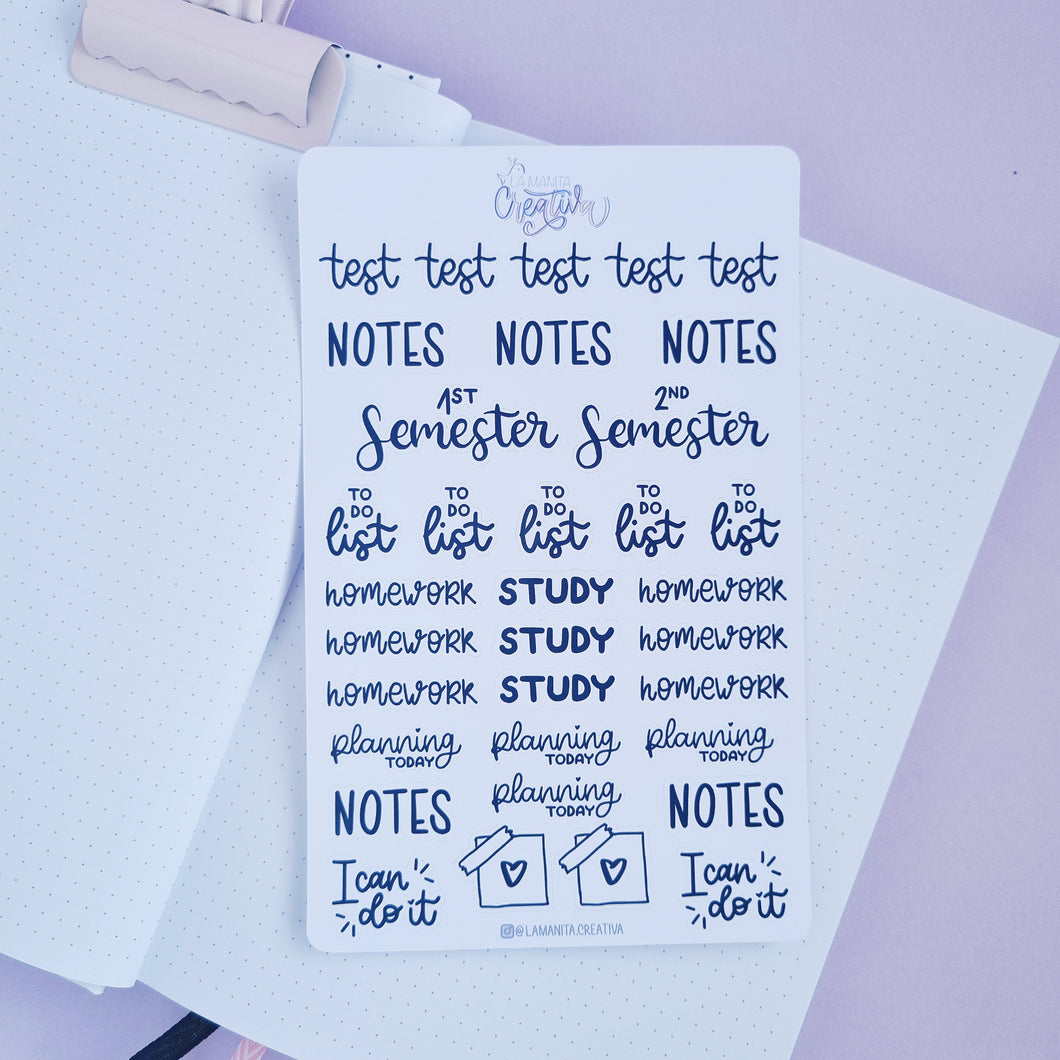 LA MANITA
Creativa
test test test test test
NOTES NOTES NOTES
1ST 2ND
Semester Semester
TO TO TO TO TO
DO DO DO DO DO
list list list list list
homework STUDY homework
homework STUDY homework
homework STUDY homework
planning planning planning
TODAY TODAY TODAY
planning
TODAY
NOTES NOTES
I can I can
do it do it
@LAMANITA.CREATIVA